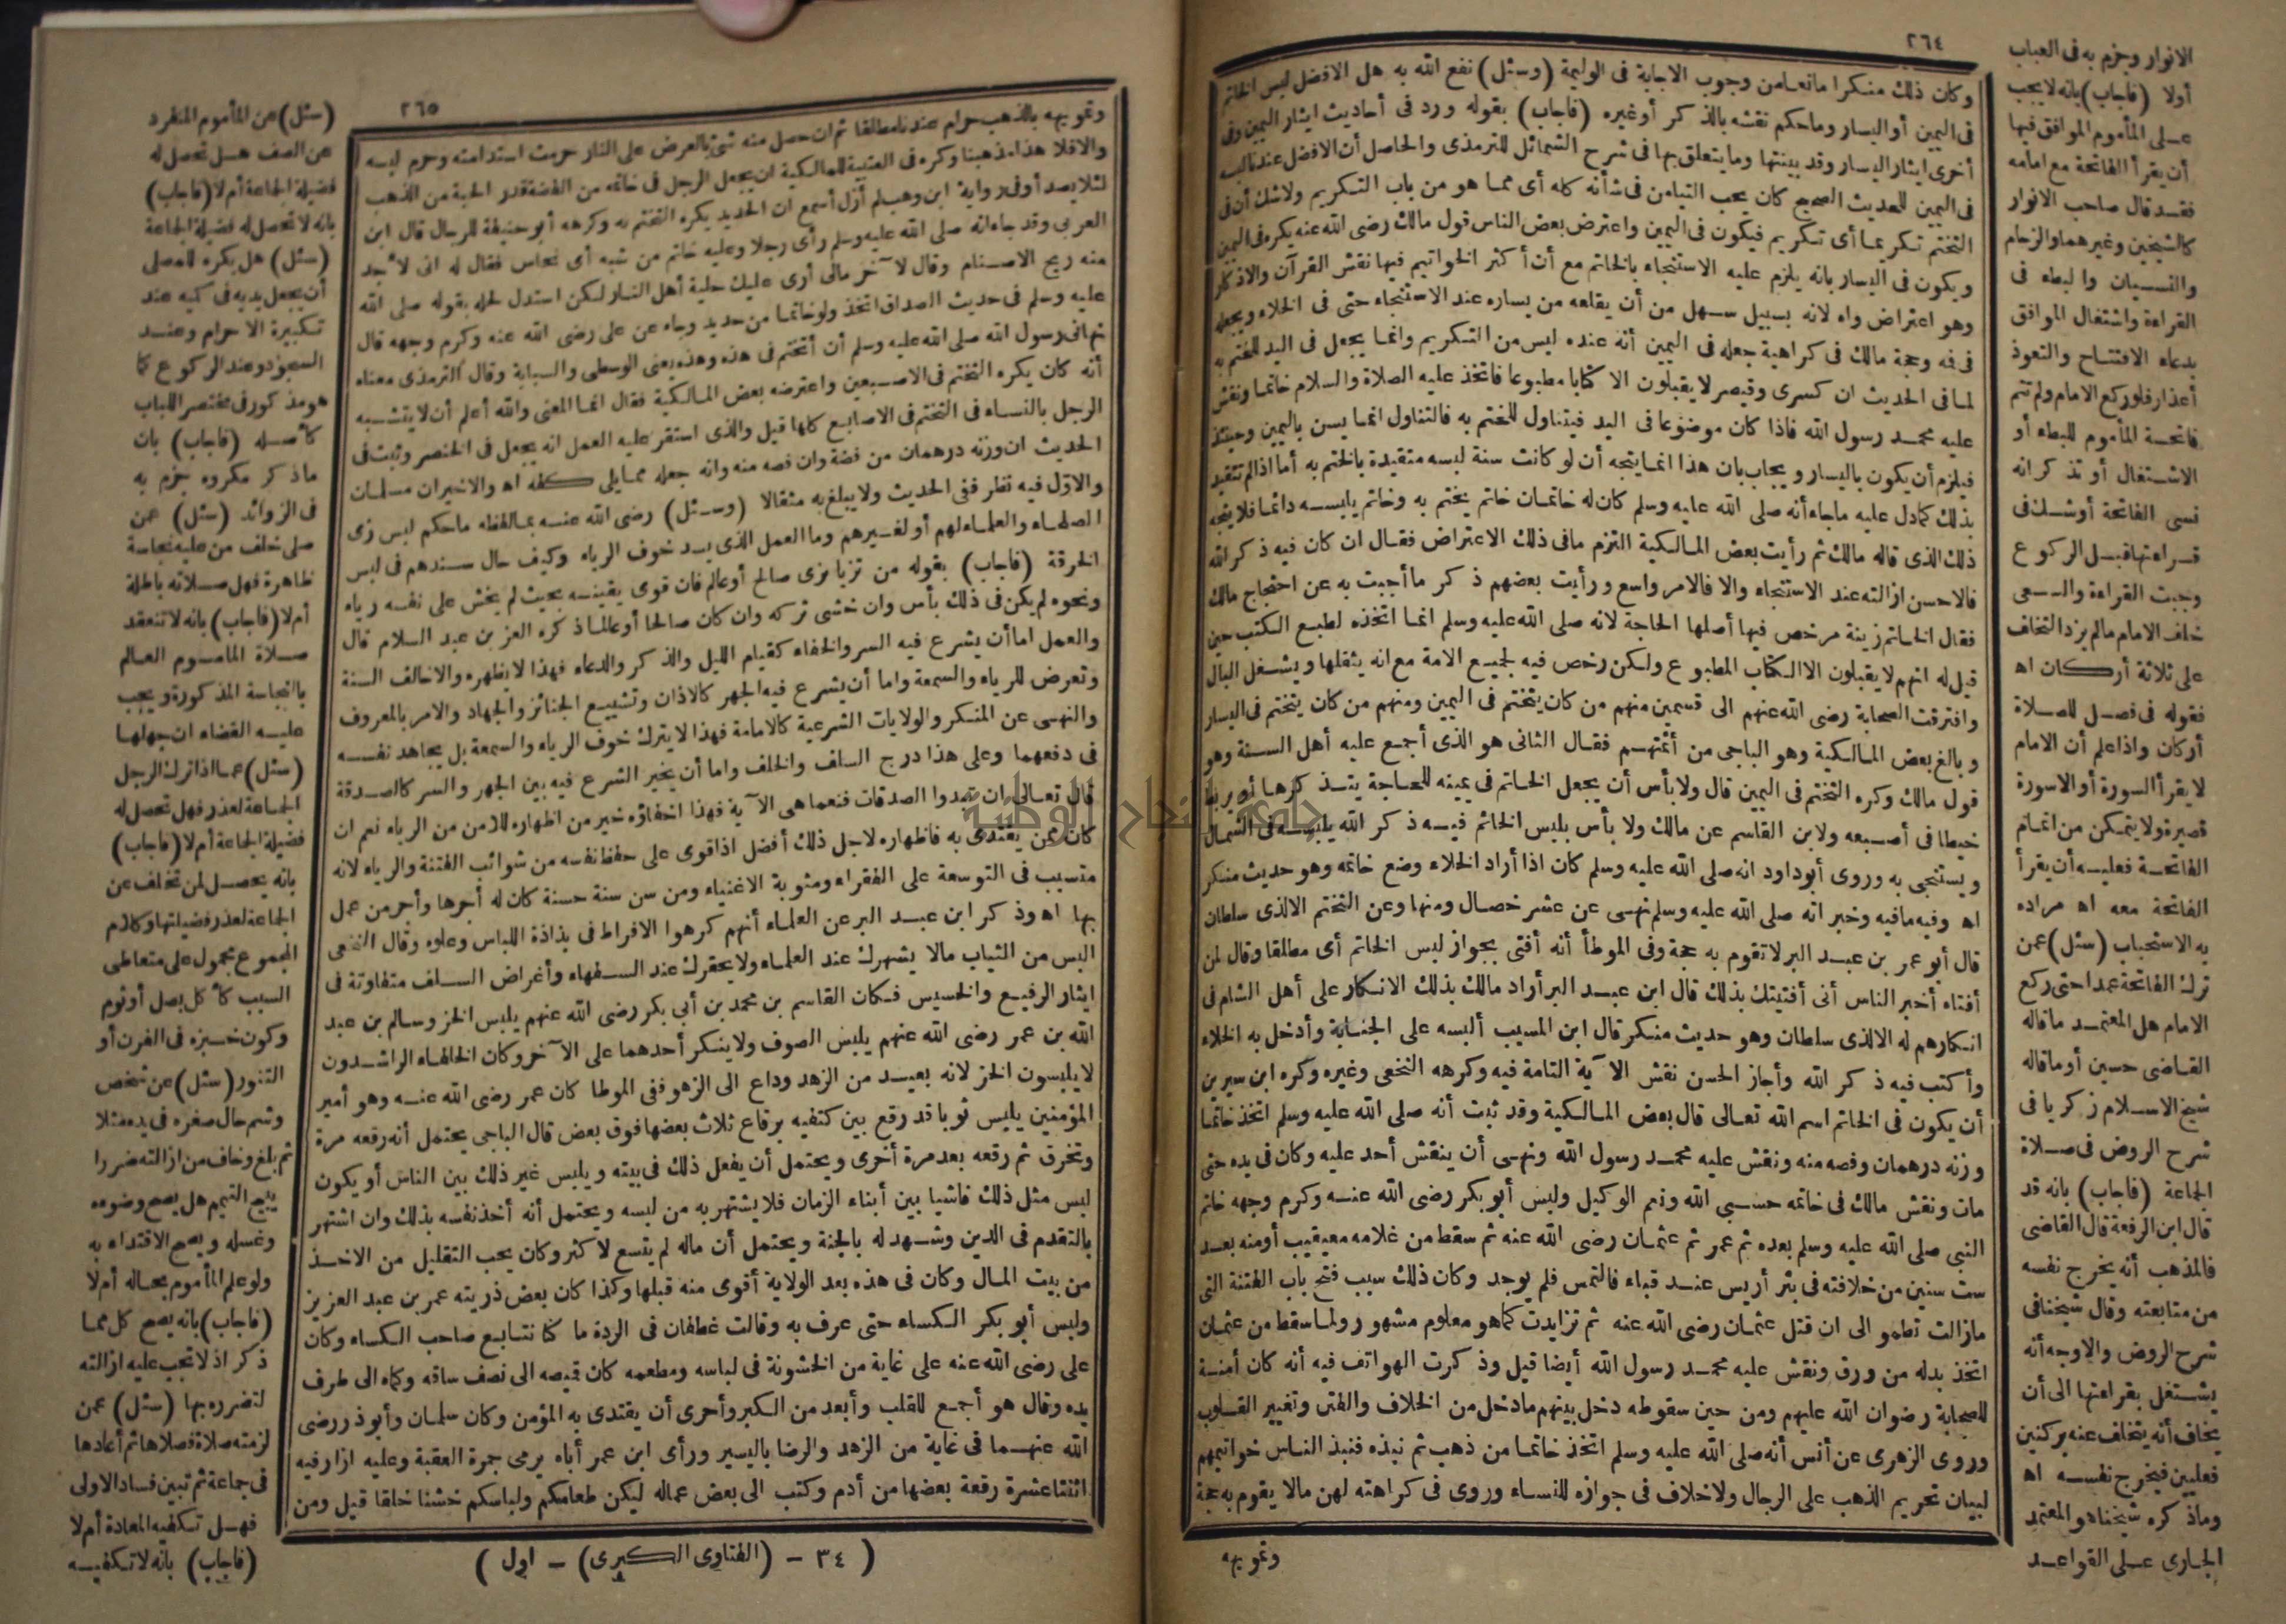 ٢٦٤
وكان ذلك منكرا مانعا من وجوب الاجابة فى الوليمة (وسئل) نفع الله به هل الافضل لبس الخاتم
فى اليمين أو اليسار وما حكم نقشه بالذكر أو غيره (فاجاب) بقوله ورد فى أحاديث ايثار اليمين وفى
أخرى ايثار اليسار وقد بينتها وما يتعلق بها فى شرح الشمائل للترمذى والحاصل أن الافضل عندنا لبسه
فى اليمين للحديث الصحيح كان يحب التيامن فى شأنه كله أى مما هو من باب التكريم ولا شك أن فى
التختم تكريما أى تكريم فيكون فى اليمين واعترض بعض الناس قول مالك رضى الله عنه يكره فى اليمين
ويكون فى اليسار بانه يلزم عليه الاستنجاء بالخاتم مع أن أكثر الخواتيم فيها نقش القرآن والاذكار
وهو اعتراض واه لانه بسبيل سهل من أن يقلعه من يساره عند الاستنجاء حتى فى الخلاء ويجعله
فى فه وحجة مالك فى كراهية جعله فى اليمين أنه عنده ليس من التكريم وانما يجعل فى اليد للختم به
لما فى الحديث ان كسرى وقيصر لا يقبلون الا كتابا مطبوعا فاتخذ عليه الصلاة والسلام خاتما ونقش
عليه محمد رسول الله فاذا كان موضوعا فى اليد فيتناول للختم به فالتناول انما يسن باليمين وحينئذ
فيلزم أن يكون باليسار ويجاب بان هذا انما يتجه أن لو كانت سنة لبسه متقيدة بالختم به أما اذا لم تتقيد
بذلك كما دل عليه ما جاء أنه صلى الله عليه وسلم كان له خاتمان خاتم يختم به وخاتم يلبسه دائما فلا يتجه
ذلك الذى قاله مالك ثم رأيت بعض المالكية التزم ما فى ذلك الاعتراض فقال ان كان فيه ذكر الله
فالاحسن ازالته عند الاستنجاء والا فالامر واسع ورأيت بعضهم ذكر ما أجبت به عن احتجاج مالك
فقال الخاتم زينة مرخص فيها أصلها الحاجة لانه صلى الله عليه وسلم انما اتخذه لطبع الكتب حين
قيل له انهم لا يقبلون الا الكتاب المطبوع ولكن رخص فيه لجميع الامة مع انه يثقلها ويشغل البال
وافترقت الصحابة رضى الله عنهم الى قسمين منهم من كان يتختم فى اليمين ومنهم من كان يتختم فى اليسار
وبالغ بعض المالكية وهو الباجى من أئمتهم فقال الثانى هو الذى أجمع عليه أهل السنة وهو
قول مالك وكره التختم فى اليمين قال ولا بأس أن يجعل الخاتم فى يمينه للحاجة يتذكرها أو يربط
خيطا فى أصبعه ولابن القاسم عن مالك ولا بأس بلبس الخاتم فيه ذكر الله يلبسه فى الشمال
ويستنجى به وروى أبو داود انه صلى الله عليه وسلم كان اذا أراد الخلاء وضع خاتمه وهو حديث منكر
اه وفيه ما فيه وخبر انه صلى الله عليه وسلم نهى عن عشر خصال ومنها وعن التختم الا لذى سلطان
قال أبو عمر بن عبد البر لا تقوم به حجة وفى الموطأ أنه أفتى بجواز لبس الخاتم أى مطلقا وقال لمن
أفتاه أخبر الناس أنى أفتيتك بذلك قال ابن عبد البر أراد مالك بذلك الانكار على أهل الشام فى
انكارهم له الا لذى سلطان وهو حديث منكر قال ابن المسيب ألبسه على الجنابة وأدخل به الخلاء
وأكتب فيه ذكر الله وأجاز الحسن نقش الآية التامة فيه وكرهه النخعى وغيره وكره ابن سيرين
أن يكون فى الخاتم اسم الله تعالى قال بعض المالكية وقد ثبت أنه صلى الله عليه وسلم اتخذ خاتما
وزنه درهمان وفصه منه ونقش عليه محمد رسول الله ونهى أن ينقش أحد عليه وكان فى يده حتى
مات ونقش مالك فى خاتمه حسبى الله ونعم الوكيل ولبس أبو بكر رضى الله عنه وكرم وجهه خاتم
النبى صلى الله عليه وسلم بعده ثم عمر ثم عثمان رضى الله عنه ثم سقط من غلامه معيقيب أو منه بعد
ست سنين من خلافته فى بئر أريس عند قباء فالتمس فلم يوجد وكان ذلك سبب فتح باب الفتنة التى
مازالت تطمو الى ان قتل عثمان رضى الله عنه ثم تزايدت كما هو معلوم مشهور ولما سقط من عثمان
اتخذ بدله من ورق ونقش عليه محمد رسول الله أيضا قيل وذكرت الهواتف فيه أنه كان أمنة
للصحابة رضوان الله عليهم ومن حين سقوطه دخل بينهم ما دخل من الخلاف والفتن وتغيير القلوب
وروى الزهرى عن أنس أنه صلى الله عليه وسلم اتخذ خاتما من ذهب ثم نبذه فنبذ الناس خواتيمهم
لبيان تحريم الذهب على الرجال ولا خلاف فى جوازه للنساء وروى فى كراهته لهن مالا يقوم به حجة
وتمويهه
الانوار وجزم به فى العباب
أولا (فاجاب) بانه لا يجب
على المأموم الموافق فيها
أن يقرأ الفاتحة مع امامه
فقد قال صاحب الانوار
كالشيخين وغيرهما والزحام
والنسيان والبطء فى
القراءة واشتغال الموافق
بدعاء الافتتاح والتعوذ
أعذار فلو ركع الامام ولم تتم
فاتحة المأموم للبطء أو
الاشتغال أو تذكر انه
نسى الفاتحة أو شك فى
قراءتها قبل الركوع
وجبت القراءة والسعى
خلف الامام مالم يزد التخلف
على ثلاثة أركان اه
فقوله فى فصل للصلاة
أركان واذا علم أن الامام
لا يقرأ السورة أو الا سورة
قصيرة ولا يتمكن من اتمام
الفاتحة فعليه أن يقرأ
الفاتحة معه اه مراده
به الاستحباب (سئل) عمن
ترك الفاتحة عمدا حتى ركع
الامام هل المعتمد ما قاله
القاضى حسين أو ما قاله
شيخ الاسلام زكريا فى
شرح الروض فى صلاة
الجماعة (فاجاب) بانه قد
قال ابن الرفعة قال القاضى
فالمذهب أنه يخرج نفسه
من متابعته وقال شيخنا فى
شرح الروض والاوجه أنه
يشتغل بقراءتها الى أن
يخاف أنه يتخلف عنه بركنين
فعليين فيخرج نفسه اه
وما ذكره شيخنا هو المعتمد
الجارى على القواعد
٢٦٥
وتمويهه بالذهب حرام عندنا مطلقا ثم ان حصل منه شئ بالعرض على النار حرمت استدامته وحرم لبسه
والا فلا هذا مذهبنا وكره فى العتبية للمالكية ان يجعل الرجل فى خاتمه من الفضة قدر الحبة من الذهب
لئلا يصدأ وفى رواية ابن وهب لم أزل أسمع ان الحديد يكره التختم به وكرهه أبو حنيفة للرجال قال ابن
العربى وقد جاء انه صلى الله عليه وسلم رأى رجلا وعليه خاتم من شبه أى نحاس فقال له انى لا جد
منه ريح الاصنام وقال لآخر مالى أرى عليك حلية أهل النار لكن استدل لحله بقوله صلى الله
عليه وسلم فى حديث الصداق اتخذ ولو خاتما من حديد وجاء عن على رضى الله عنه وكرم وجهه قال
نهانى رسول الله صلى الله عليه وسلم أن أتختم فى هذه وهذه يعنى الوسطى والسبابة وقال الترمذى معناه
أنه كان يكره التختم فى الاصبعين واعترضه بعض المالكية فقال انما المعنى والله أعلم أن لا يتشبه
الرجل بالنساء فى التختم فى الاصابع كلها قيل والذى استقر عليه العمل انه يجعل فى الخنصر وثبت فى
الحديث ان وزنه درهمان من فضة وان فصه منه وانه جعله مما يلى كفه اه والاخيران مسلمان
والاول فيه نظر ففى الحديث ولا يبلغ به مثقالا (وسئل) رضى الله عنه بما لفظه ما حكم لبس زى
الصلحاء والعلماء لهم أو لغيرهم وما العمل الذى يرد خوف الرياء وكيف حال سندهم فى لبس
الخرقة (فاجاب) بقوله من تزيا بزى صالح أو عالم فان قوى يقينه بحيث لم يخش على نفسه رياء
ونحوه لم يكن فى ذلك بأس وان خشى تركه وان كان صالحا أو عالما ذكره العز بن عبد السلام قال
والعمل اما أن يشرع فيه السر والخفاء كقيام الليل والذكر والدعاء فهذا لا يظهره والا خالف السنة
وتعرض للرياء والسمعة واما أن يشرع فيه الجهر كالاذان وتشييع الجنائز والجهاد والامر بالمعروف
والنهى عن المنكر والولايات الشرعية كالامامة فهذا لا يترك خوف الرياء والسمعة بل يجاهد نفسه
فى دفعهما وعلى هذا درج السلف والخلف واما أن يخير الشرع فيه بين الجهر والسر كالصدقة
قال تعالى ان تبدوا الصدقات فنعما هى الآية فهذا اخفاؤه خير من اظهاره للأمن من الرياء نعم ان
كان ممن يقتدى به فاظهاره لاجل ذلك أفضل اذا قوى على حفظ نفسه من شوائب الفتنة والرياء لانه
متسبب فى التوسعة على الفقراء ومثوبة الاغنياء ومن سن سنة حسنة كان له أجرها وأجر من عمل
بها اه وذكر ابن عبد البر عن العلماء أنهم كرهوا الافراط فى بذاذة اللباس وعلوه وقال النخعى
البس من الثياب مالا يشهرك عند العلماء ولا يحقرك عند السفهاء وأغراض السلف متفاوتة فى
ايثار الرفيع والخسيس فكان القاسم بن محمد بن أبى بكر رضى الله عنهم يلبس الخز وسالم بن عبد
الله بن عمر رضى الله عنهم يلبس الصوف ولا ينكر أحدهما على الآخر وكان الخلفاء الراشدون
لا يلبسون الخز لانه بعيد من الزهد وداع الى الزهو ففى الموطا كان عمر رضى الله عنه وهو أمير
المؤمنين يلبس ثوبا قد رقع بين كتفيه برقاع ثلاث بعضها فوق بعض قال الباجى يحتمل أنه رقعه مرة
وتخرق ثم رقعه بعد مرة أخرى ويحتمل أن يفعل ذلك فى بيته ويلبس غير ذلك بين الناس أو يكون
لبس مثل ذلك فاشيا بين أبناء الزمان فلا يشتهر به من لبسه ويحتمل أنه أخذ نفسه بذلك وان اشتهر
بالتقدم فى الدين وشهد له بالجنة ويحتمل أن ماله لم يتسع لاكثر وكان يحب التقليل من الاخذ
من بيت المال وكان فى هذه بعد الولاية أقوى منه قبلها وكذا كان بعض ذريته عمر بن عبد العزيز
ولبس أبو بكر الكساء حتى عرف به وقالت غطفان فى الردة ما كنا نتابع صاحب الكساء وكان
على رضى الله عنه على غاية من الخشونة فى لباسه ومطعمه كان قميصه الى نصف ساقه وكماه الى طرف
يده وقال هو أجمع للقلب وأبعد من الكبر وأحرى أن يقتدى به المؤمن وكان سلمان وأبوذر رضى
الله عنهما فى غاية من الزهد والرضا باليسير ورأى ابن عمر أباه يرمى جمرة العقبة وعليه ازار فيه
اثنتا عشرة رقعة بعضها من أدم وكتب الى بعض عماله ليكن طعامكم ولباسكم خشنا خلقا قيل ومن
(سئل) عن المأموم المنفرد
عن الصف هل تحصل له
فضيلة الجماعة أم لا (فاجاب)
بانه لا تحصل له فضيلة الجماعة
(سئل) هل يكره للمصلى
أن يجعل يديه فى كميه عند
تكبيرة الاحرام وعند
السجود وعند الركوع كما
هو مذكور فى مختصر اللباب
كأصله (فاجاب) بان
ما ذكر مكروه جزم به
فى الزوائد (سئل) عمن
صلى خلف من عليه نجاسة
ظاهرة فهل صلاته باطلة
أم لا (فاجاب) بانه لا تنعقد
صلاة المأموم العالم
بالنجاسة المذكورة ويجب
عليه القضاء ان جهلها
(سئل) عما اذا ترك الرجل
الجماعة لعذر فهل تحصل له
فضيلة الجماعة أم لا (فاجاب)
بانه يحصل لمن تخلف عن
الجماعة لعذر فضيلتها وكلام
المجموع محمول على متعاطى
السبب كأكل بصل أو ثوم
وكون خبزه فى الفرن أو
التنور (سئل) عن شخص
وشم حال صغره فى يده مثلا
ثم بلغ وخاف من ازالته ضررا
يبيح التيمم هل يصح وضوءه
وغسله ويصح الاقتداء به
ولو علم المأموم بحاله أم لا
(فاجاب) بانه يصح كل مما
ذكر اذ لا تجب عليه ازالته
لتضرره بها (سئل) عمن
لزمته صلاة فصلاها ثم أعادها
فى جماعة ثم تبين فساد الاولى
فهل تكفيه المعادة أم لا
(فاجاب) بانه لا تكفيه
(٣٤ - (الفتاوى الكبرى) - اول)
جامعة النجاح الوطنية